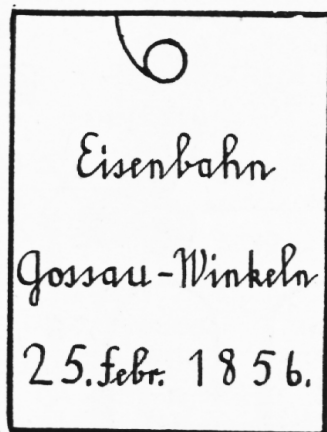 Eisenbahn
Gossau-Winkeln
25. Febr. 1856.